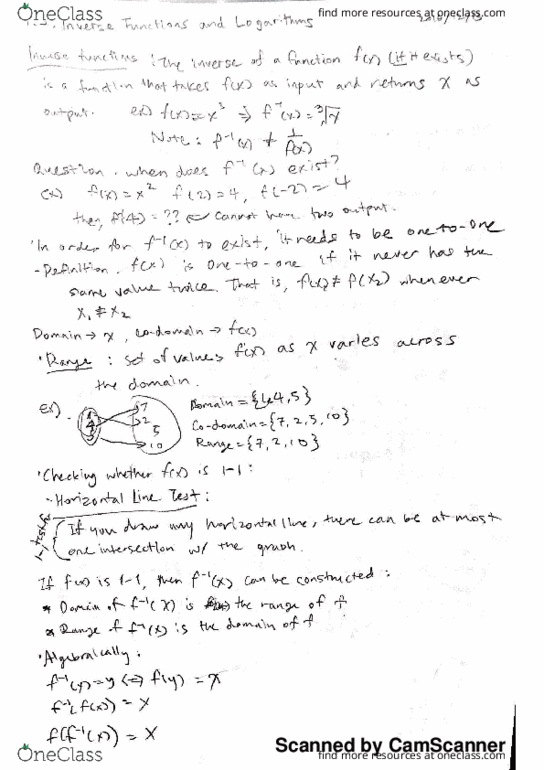 OneClass
find more resources at oneclass.com
find more resources at oneclass.com
Inverse Functions and Logarithms
Inverse functions : The inverse of a function f(x) (if it exists)
is a function that takes f(x) as input and returns x as
output. ex) f(x)=x³ ⇒ f⁻¹(x)=∛x
Note : f⁻¹(x) ≠ 1/f(x)
Question. when does f⁻¹(x) exist?
ex) f(x)=x² f(2)=4, f(-2)=4
then, f(4)= ?? ← cannot have two output.
In order for f⁻¹(x) to exist, it needs to be one-to-one
- Definition. f(x) is one-to-one if it never has the
same value twice. That is, f(x₁)≠f(x₂) whenever
x₁≠x₂
Domain → x, co-domain → f(x)
Range : set of values f(x) as x varies across
the domain.
ex). 7 Domain = {1,4,5}
4 2 5 Co-domain = {7, 2, 5, 10}
10 Range = {7, 2, 10}
Checking whether f(x) is 1-1 :
- Horizontal Line Test :
If you draw any horizontal line, there can be at most
one intersection w/ the graph.
If f(x) is 1-1, then f⁻¹(x) can be constructed :
* Domain of f⁻¹(x) is the range of f
* Range of f⁻¹(x) is the domain of f
Algebraically :
f⁻¹(x)=y ⇔ f(y) = x
f⁻¹(f(x)) = x
f(f⁻¹(x)) = x
Scanned by CamScanner
OneClass
find more resources at oneclass.com
find more resources at oneclass.com